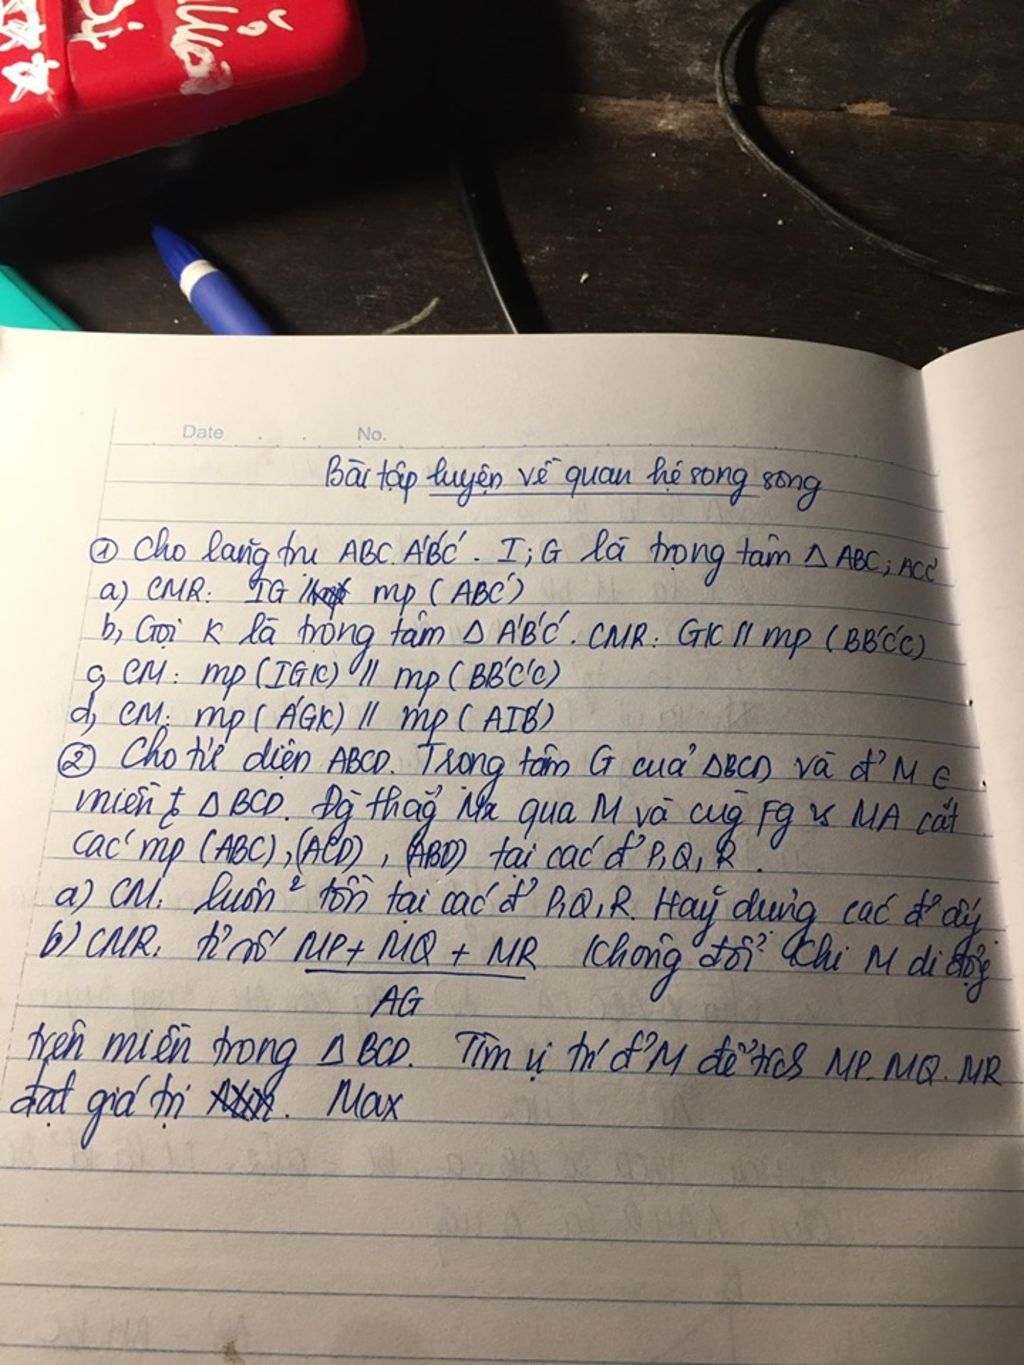 Date . . No.
Bài tập luyện về quan hệ song song
① Cho lăng trụ ABC.A'B'C'. I; G là trọng tâm Δ ABC; ACC'
a) CMR: IG // mp (ABC')
b, Gọi K là trọng tâm Δ A'B'C'. CMR: GK // mp (BB'C'C)
c, CM: mp (IGK) // mp (BB'C'C)
d, CM: mp (A'GK) // mp (AIB')
② Cho tứ diện ABCD. Trọng tâm G của ΔBCD và đ' M ∈
miền t Δ BCD. Đg thẳg Mx qua M và cùg fg vs MA cắt
các mp (ABC), (ACD), (ABD) tại các đ' P, Q, R.
a) CM: luôn² tồn tại các đ' P, Q, R. Hãy dựng các đ' đấy
b) CMR: tỉ số MP + MQ + MR không đổi khi M di độg
AG
trên miền trong Δ BCD. Tìm vị trí đ' M để tích MP.MQ.MR
đạt giá trị Max